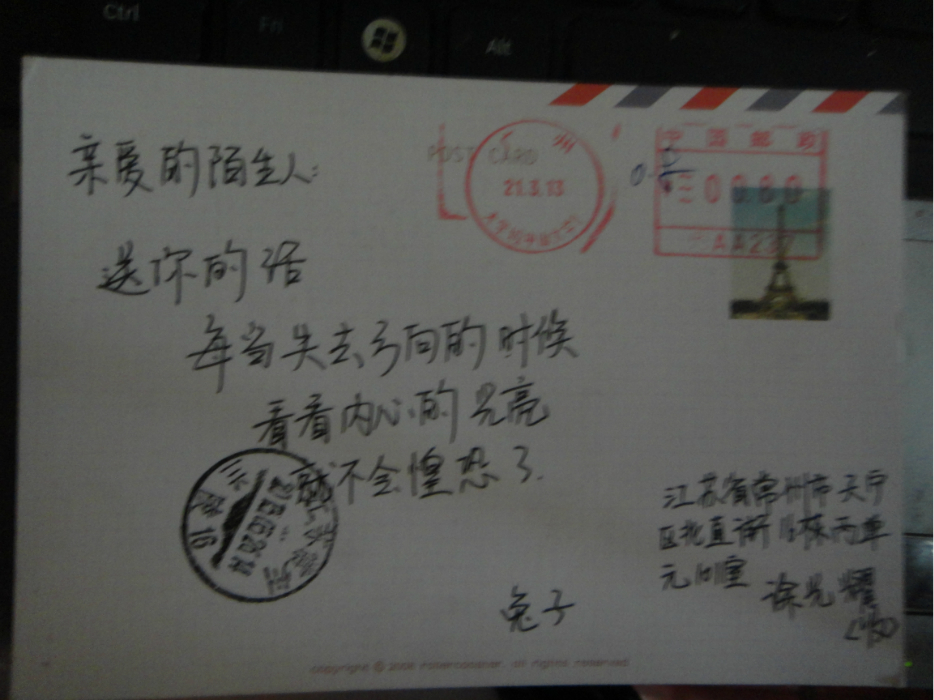 Ctrl
Fn
Alt
POST CARD
21.3.13
中国邮政
0080
AA237
亲爱的陌生人:
送你的话
每当失去方向的时候
看看内心的光亮
就不会惶恐了.
江苏省常州市天宁
区北直街
元101室
徐光耀
兔子
江苏常州
copyright © 2006 all rights reserved